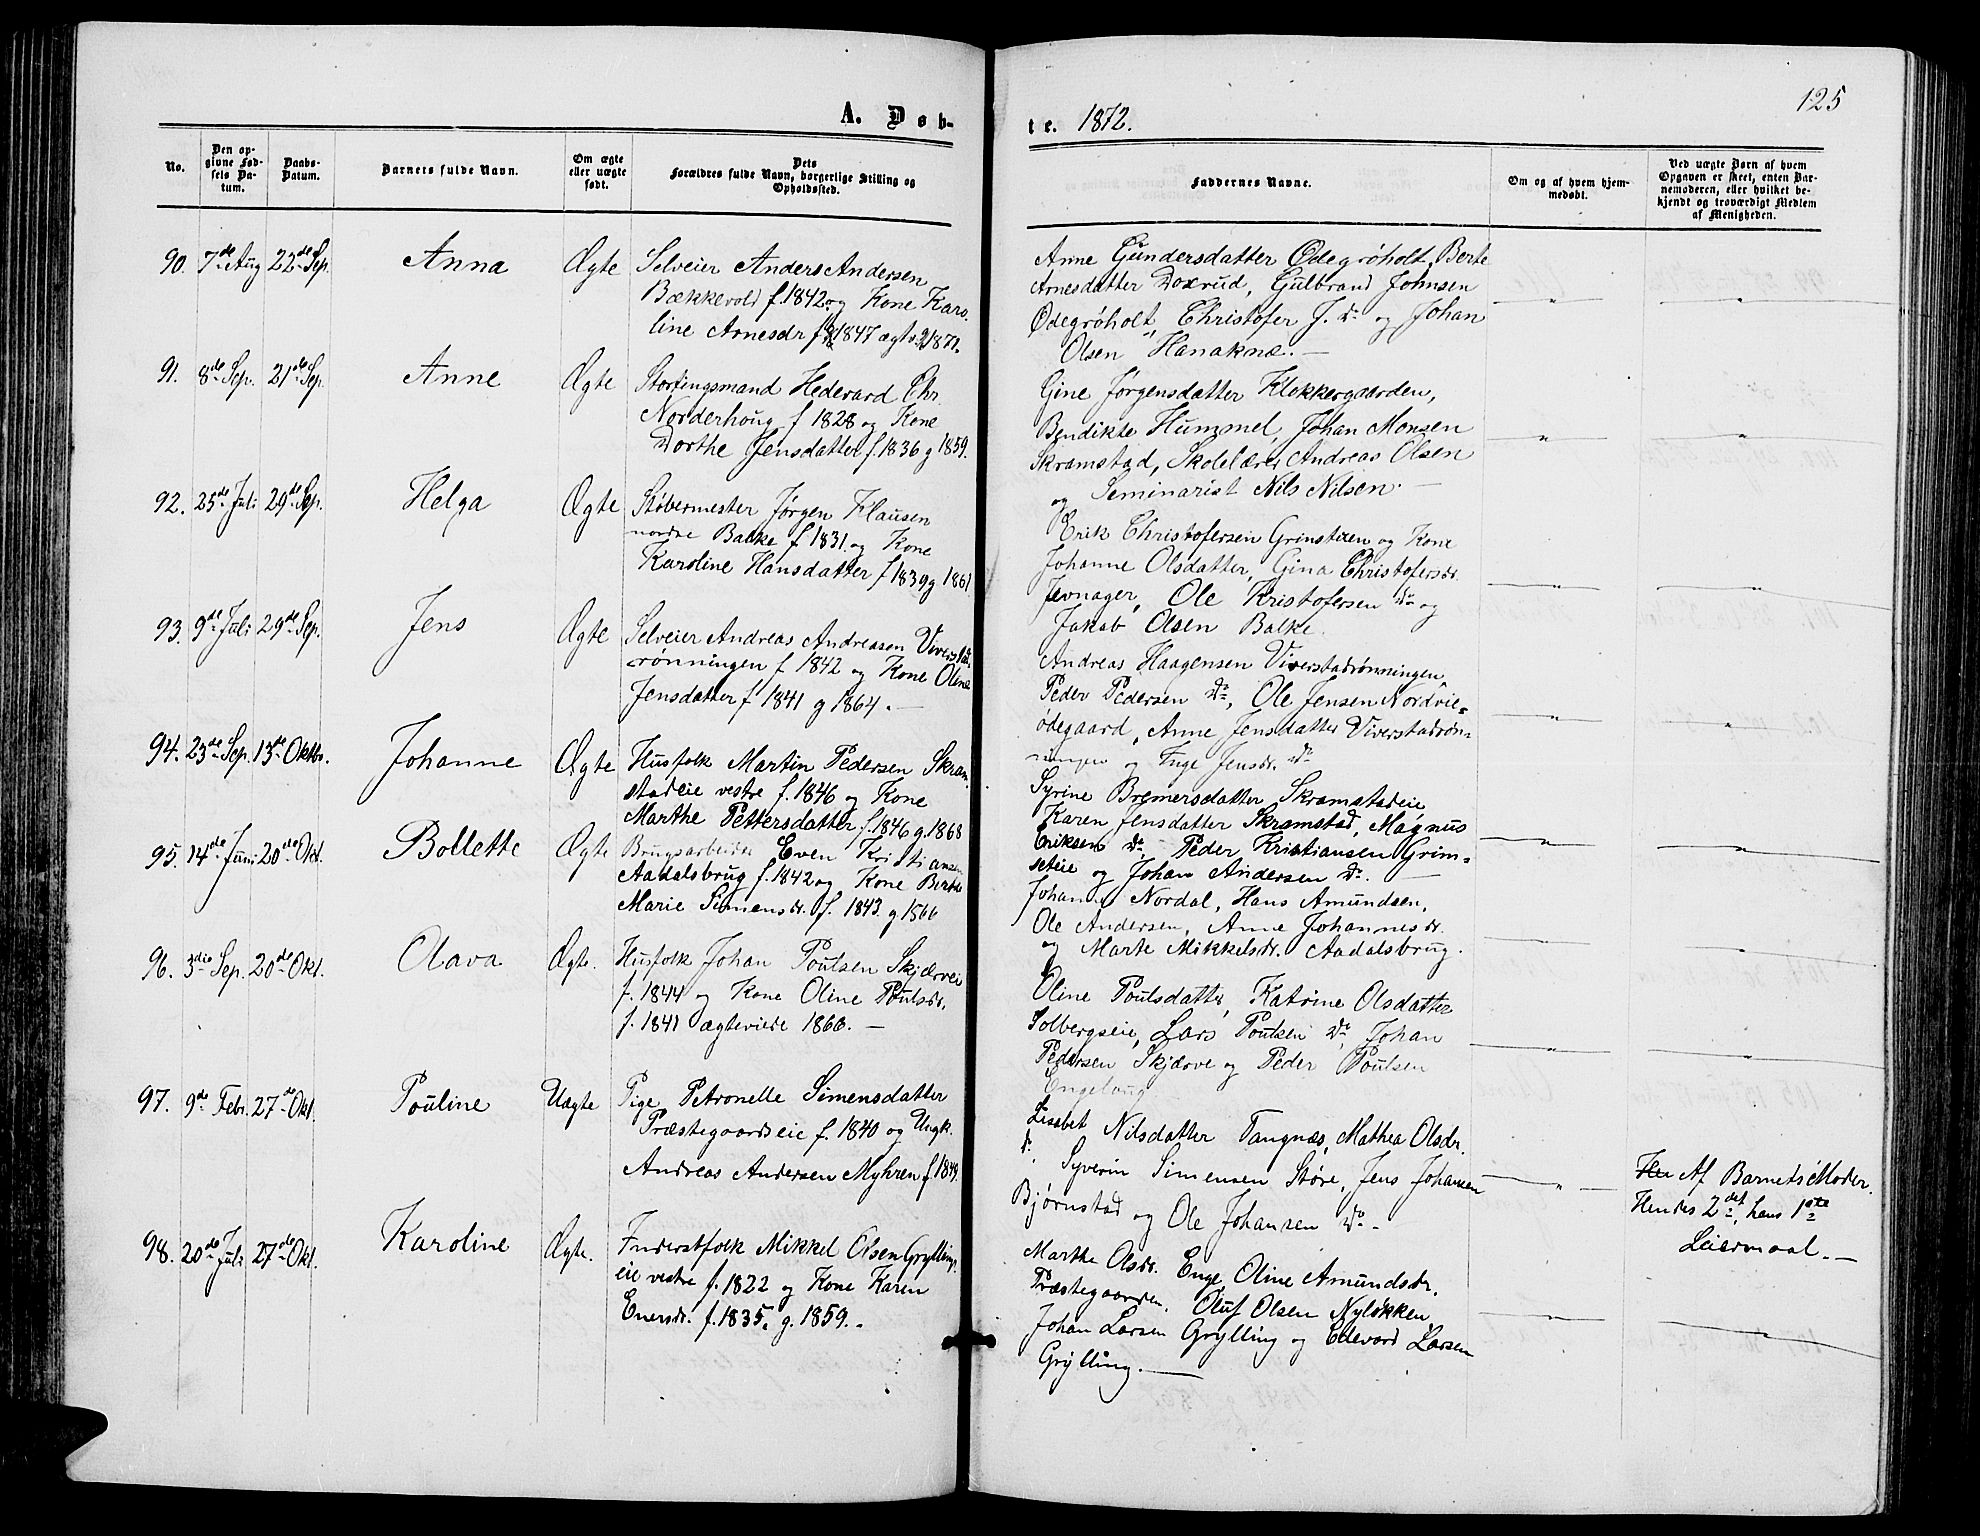 A. Døb-
No.
Den op-
givne Fød-
sels Da-
tum.
Daabs-
Datum.
Barnets fulde Navn.
Om ægte
eller uægte
født.
Dets
Forældres fulde Navn, borgerlige Stilling og
Opholdssted.
90. 7de Aug 22de Sep. Anna Ægte Selveier Anders Andersen
Bækkevold f. 1842 og Kone Karo-
line Arnesdr f 1847 ægtv 1871.
91. 8de Sep. 21de Sep. Anne Ægte Stortingsmand Hedevard Chr.
Norderhoug f 1828 og Kone
Dorthe Jensdatter f. 1836 g 1859.
92. 25de Juli 29de Sep. Helga Ægte Støbermester Jørgen Klausen
nordre Balke f. 1831 og Kone
Karoline Hansdatter f 1839 g 1861
93. 9de Juli 29de Sep. Jens Ægte Selveier Andreas Andreasen Viverstad-
rønningen f. 1842 og Kone Oline
Jensdatter f 1841 g 1864. —
94. 23de Sep. 13de Oktbr. Johanne Ægte Husfolk Martin Pedersen Skram-
stadeie vestre f. 1846 og Kone
Marthe Pettersdatter f. 1846 g 1868
95. 14de Juni 20de Okt. Bollette Ægte Brugsarbeider Even Kristiansen
Aadalsbrug f. 1842 og Kone Berthe
Marie Simensdr. f. 1843. g 1866
96. 3die Sep. 20de Okt. Olava Ægte. Husfolk Johan Poulsen Skjærveie
f. 1844 og Kone Oline Poulsdr.
f. 1841 ægteviede 1866. —
97. 9de Febr. 27de Okt. Pouline Uægte Pige Petronelle Simensdatter
Præstegaardseie f. 1840 og Ungk.
Andreas Andersen Myhren f. 1849.
98. 20de Juli 27de Okt. Karoline Ægte. Inderstfolk Mikkel Olsen Gryllings-
eie vestre f. 1822 og Kone Karen
Enersdr. f. 1835. g. 1859. -
125
te. 1872.
Faddernes Navne.
Om og af hvem hjem-
medøbt.
Ved uægte Børn af hvem
Opgaven er skeet, enten Bar-
nemoderen, eller hvilket be-
kjendt og troværdigt Medlem
af Menigheden.
Anne Gundersdatter Ødegrøholt, Berte
Arnesdatter Doxrud, Gulbrand Johnsen
Ødegrøholt, Christofer J. Do og Johan
Olsen Hanaknæ. —
Gine Jørgensdatter Klokkergaarden,
Bendikte Hummel, Johan Monsen
Skramstad, Skolelærer Andreas Olsen
og Seminarist Nils Nilsen. —
Erik Christofersen Grinsteen og Kone
Johanne Olsdatter, Gina Christofersdr.
Jevnager, Ole Kristofersen Do og
Jakob Olsen Balke.
Andreas Haagensen Viverstadrønningen,
Peder Pedersen Do, Ole Jensen Nordvie-
ødegaard, Anne Jensdatter Viverstadrøn-
ningen og Inge Jensdr. Do
Syrine Bremersdatter Skramstadeie
Karen Jensdatter Skramstad, Magnus
Eriksen Do Peder Kristiansen Grim-
seteie og Johan Andersen Do. —
Johan Nordal, Hans Amundsen,
Ole Andersen, Anne Johannesdr.
og Marte Mikkelsdr. Aadalsbrug.
Oline Poulsdatter, Katrine Olsdatter
Solbergseie, Lars Poulsen Do Johan
Pedersen Skjærve og Peder Poulsen
Engelaug
Lisabet Nilsdatter Tangnæs, Mathea Olsdr.
Do. Syverin Simensen Støre, Jens Johansen
Bjørnstad og Ole Johansen Do -
Af Barnets Moder.
Hendes 2det, hans 1ste
Leiermaal. —
Marthe Olsdr. Enge, Oline Amundsdr.
Præstegaarden. Oluf Olsen Nyløkken
Johan Larsen Grylling og Edevard Larsen
Grylling. —